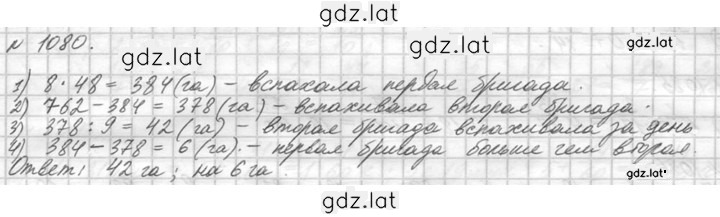 gdz.lat
№ 1080.
gdz.lat
gdz.lat
1) 8 · 48 = 384 (га) - вспахала первая бригада.
2) 762 - 384 = 378 (га) - вспахивала вторая бригада.
3) 378 : 9 = 42 (га) - вторая бригада вспахивала за день
4) 384 - 378 = 6 (га). - первая бригада больше чем вторая.
Ответ: 42 га; на 6 га.
gdz.lat
gdz.lat
gdz.lat